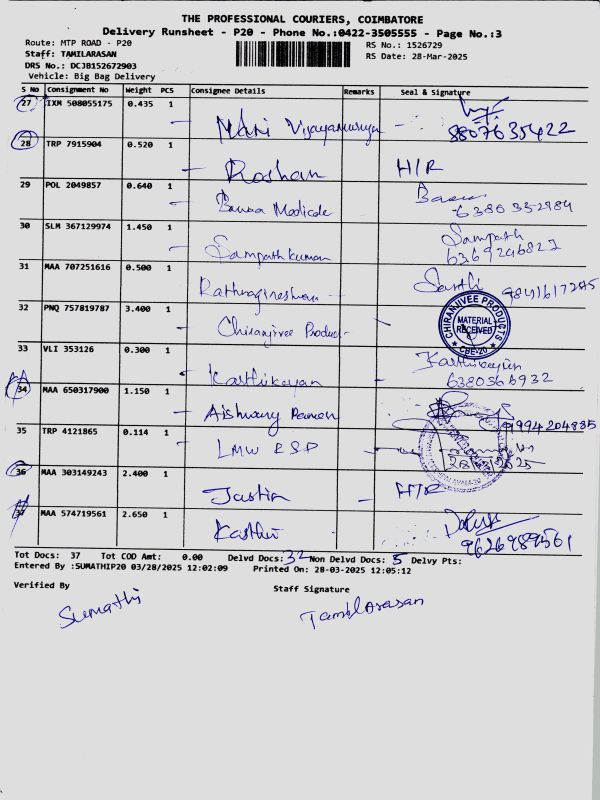 THE PROFESSIONAL COURIERS, COIMBATORE
Delivery Runsheet - P20 - Phone No.:0422-3505555 - Page No.:3
Route: MTP ROAD - P20
RS No.: 1526729
Staff: TAMILARASAN
RS Date: 28-Mar-2025
DRS No.: DCJB152672903
Vehicle: Big Bag Delivery
S No Consignment No Weight PCS Consignee Details Remarks Seal & Signature
27 IXM 508055175 0.435 1
Mani Vijayamurugan 8807635422
28 TRP 7915904 0.520 1
Roshan H/R
29 POL 2049857 0.640 1
Medicals 6380352984
30 SLM 367129974 1.450 1
Sampathkumar Sampath
6369246827
31 MAA 707251616 0.500 1
9841617245
32 PNQ 757819787 3.400 1
Chiranjivee Product
CHIRANJIVEE PRODUCTS
MATERIAL RECEIVED
CBE-20
33 VLI 353126 0.300 1
Karthikeyan Karthikeyan
6380566932
34 MAA 650317900 1.150 1
9994204835
35 TRP 4121865 0.114 1
LMW RSD
36 MAA 303149243 2.400 1
Justin H/R
37 MAA 574719561 2.650 1
9626989561
Tot Docs: 37 Tot COD Amt: 0.00 Delvd Docs: 32 Non Delvd Docs: 5 Delvy Pts:
Entered By :SUMATHIP20 03/28/2025 12:02:09 Printed On: 28-03-2025 12:05:12
Verified By Staff Signature
Sumathi Tamilarasan